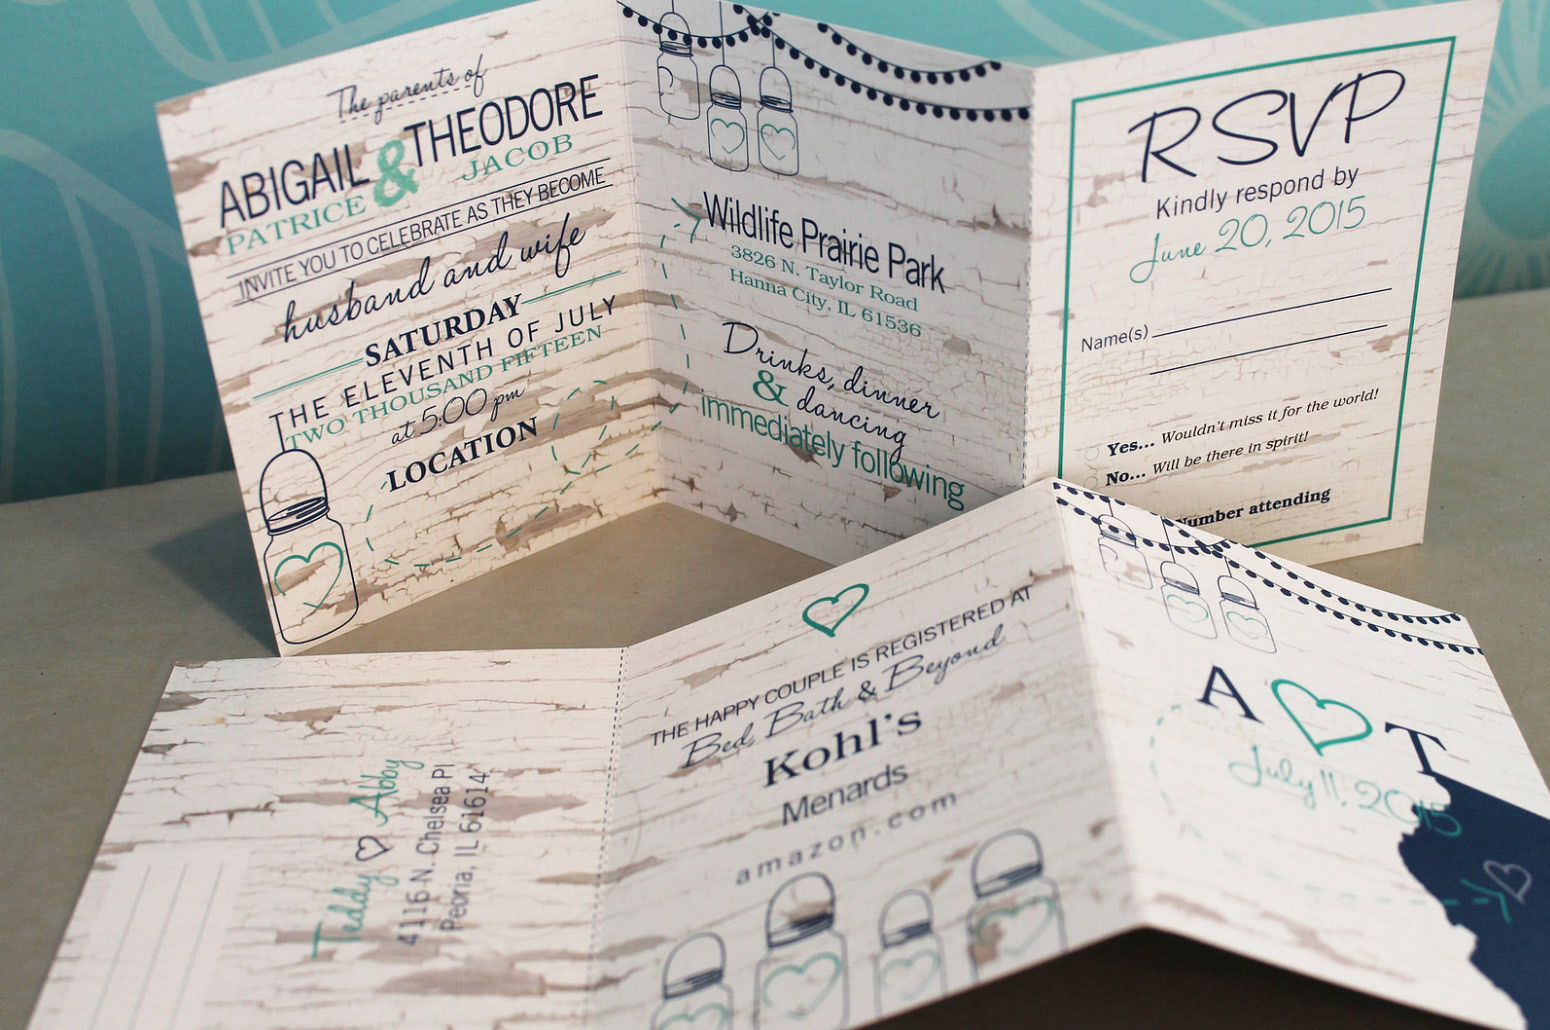 The parents of
ABIGAIL & THEODORE
PATRICE JACOB
INVITE YOU TO CELEBRATE AS THEY BECOME
husband and wife
SATURDAY
THE ELEVENTH OF JULY
TWO THOUSAND FIFTEEN
at 5:00 pm
LOCATION
Wildlife Prairie Park
3826 N. Taylor Road
Hanna City, IL 61536
Drinks, dinner
& dancing
immediately following
RSVP
Kindly respond by
June 20, 2015
Name(s)
Yes... Wouldn't miss it for the world!
No... Will be there in spirit!
Number attending
Teddy Abby
4116 N. Chelsea Pl
Peoria, IL 61614
THE HAPPY COUPLE IS REGISTERED AT
Bed, Bath & Beyond
Kohl's
Menards
amazon.com
A T
July 11, 2015